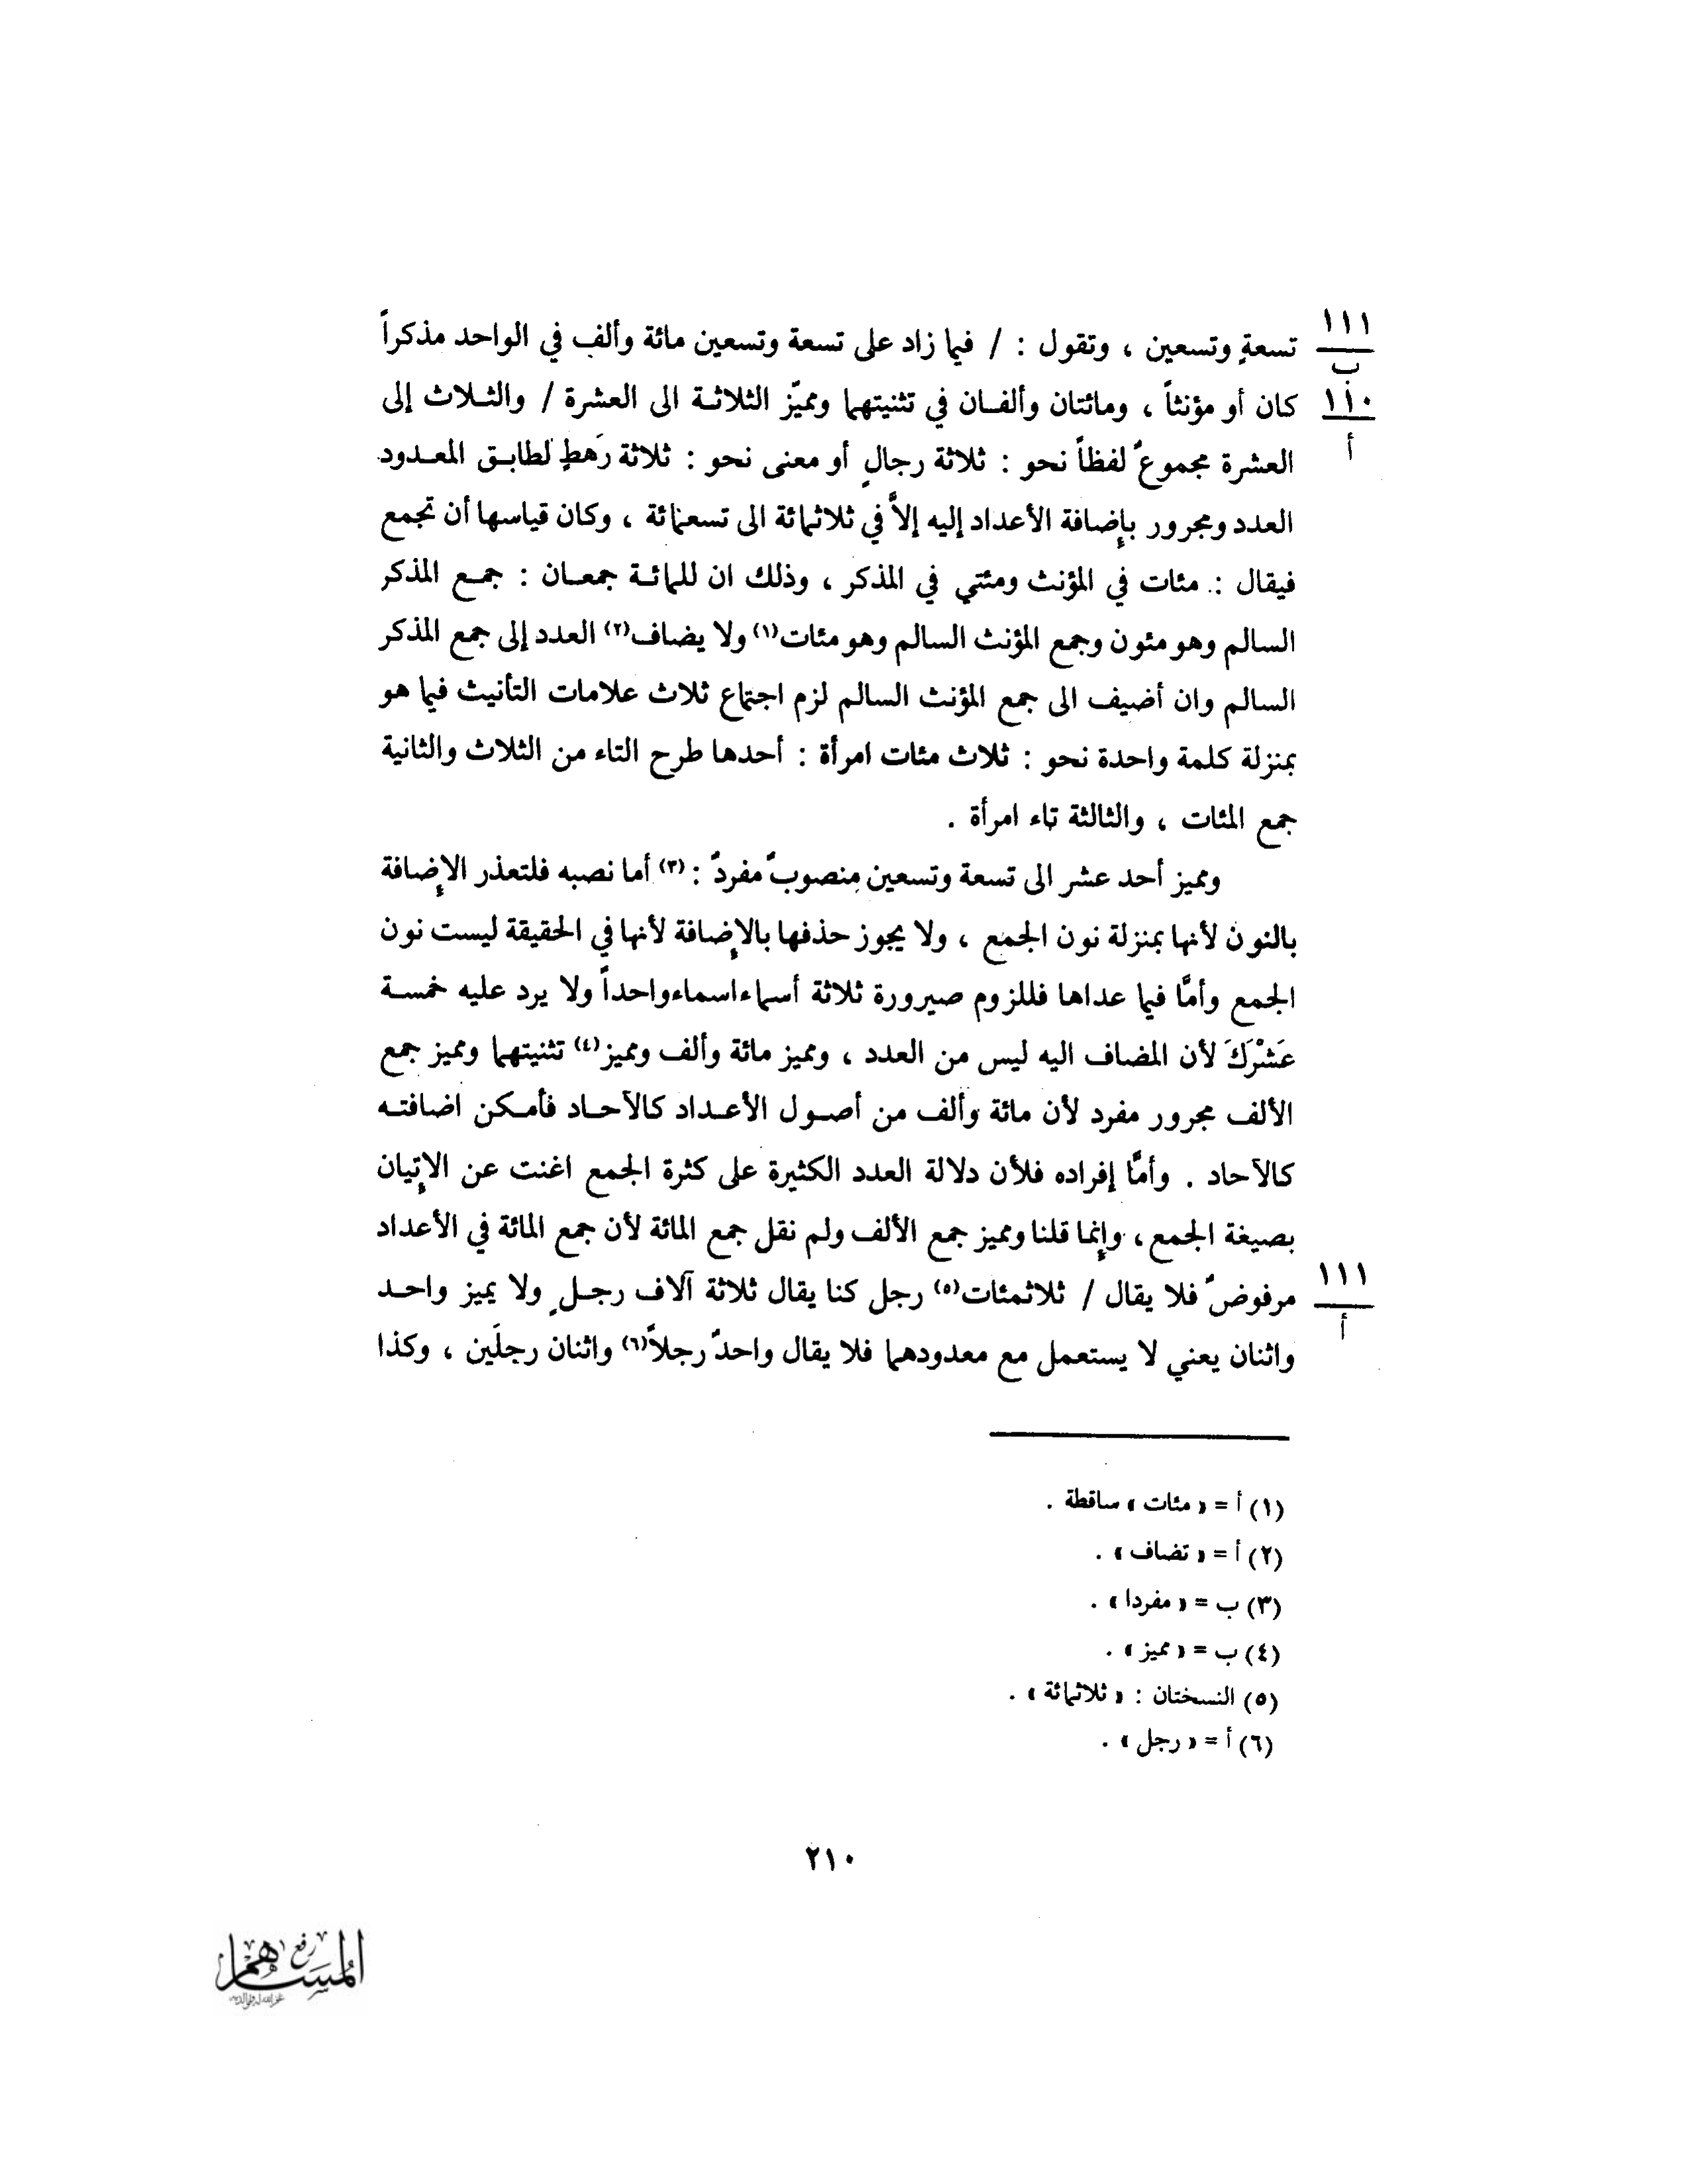 ١١١
ب
تسعةٍ وتسعين ، وتقول : / فيما زاد على تسعة وتسعين مائة وألف في الواحد مذكراً
١١٠
أ
كان أو مؤنثاً ، ومائتان وألفـان في تثنيتهما ومميّز الثلاثـة الى العشرة / والثـلاث إلى
العشرة مجموعٌ لفظاً نحو : ثلاثة رجالٍ أو معنى نحو : ثلاثة رَهطٍ لطابـق المعـدود
العدد ومجرور بإضافة الأعداد إليه إلاَّ في ثلاثمائة الى تسعمائة ، وكان قياسها أن تجمع
فيقال : مئات في المؤنث ومئتي في المذكر ، وذلك ان للمائـة جمعـان : جمـع المذكر
السالم وهو مئون وجمع المؤنث السالم وهو مئات(١) ولا يضاف(٢) العدد إلى جمع المذكر
السالم وان أضيف الى جمع المؤنث السالم لزم اجتماع ثلاث علامات التأنيث فيما هو
بمنزلة كلمة واحدة نحو : ثلاث مئات امرأة : أحدها طرح التاء من الثلاث والثانية
جمع المئات ، والثالثة تاء امرأة .
ومميز أحد عشر الى تسعة وتسعين منصوبٌ مفردٌ : (٣) أما نصبه فلتعذر الإضافة
بالنون لأنها بمنزلة نون الجمع ، ولا يجوز حذفها بالإضافة لأنها في الحقيقة ليست نون
الجمع وأمَّا فيما عداها فللزوم صيرورة ثلاثة أسماء اسماء واحداً ولا يرد عليه خمسـة
عَشْرَكَ لأن المضاف اليه ليس من العدد ، ومميز مائة وألف ومميز(٤) تثنيتهما ومميز جمع
الألف مجرور مفرد لأن مائة وألف من أصـول الأعـداد كالآحـاد فأمـكن اضافتـه
كالآحاد . وأمَّا إفراده فلأن دلالة العدد الكثيرة على كثرة الجمع اغنت عن الإتيان
بصيغة الجمع ، وإنما قلنا ومميز جمع الألف ولم نقل جمع المائة لأن جمع المائة في الأعداد
١١١
أ
مرفوضٌ فلا يقال / ثلاثمئات(٥) رجل كنا يقال ثلاثة آلاف رجـلٍ ولا يميز واحـد
واثنان يعني لا يستعمل مع معدودهما فلا يقال واحدٌ رجلاً(٦) واثنان رجلَين ، وكذا
(١) أ = « مئات » ساقطة .
(٢) أ = « تضاف » .
(٣) ب = « مفردا » .
(٤) ب = « مميز » .
(٥) النسختان : « ثلاثمائة » .
(٦) أ = « رجل » .
٢١٠
رفع
المساهم